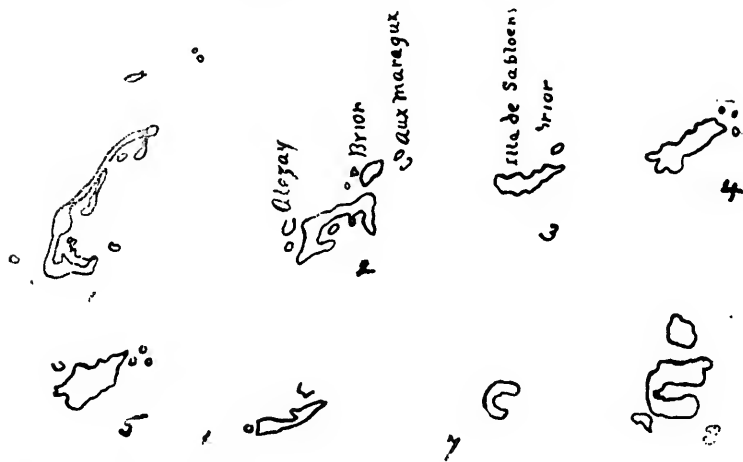 Alezay
Brior
Aux maregux
Illa de Sabloens
Brior
1
2
3
4
5
7
8